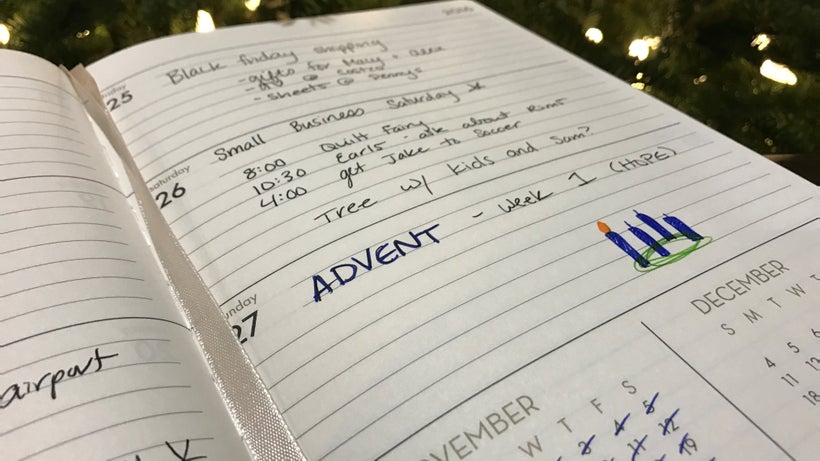 2016
25
Black friday shopping
- gifts for Mary + alex
- @ Costco
- sheets @ Pennys
saturday
26
Small Business Saturday
8:00 Quilt Fairy
10:30 Earls - ask about Rims
4:00 get Jake to Soccer
Tree w/ kids and Sam?
27
ADVENT - week 1 (HOPE)
airport
DECEMBER
S M T W T
4 5 6
11 12 13
18
W T F S
2 4 5
11 12
19